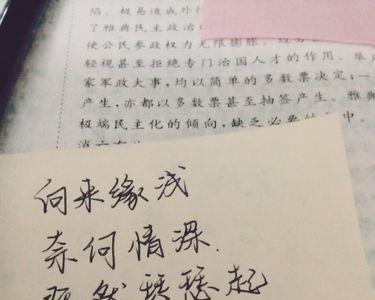 陷。极易造成外行
了雅典民主政治
使公民参政权力无限膨胀。
轻视甚至拒绝专门治国人才的作用。
家军政大事，均以简单的多数票决定；一
产生，亦都以多数票甚至抽签产生。雅典
极端民主化的倾向，缺乏必要的
向来缘浅
奈何情深.
然 瑟起